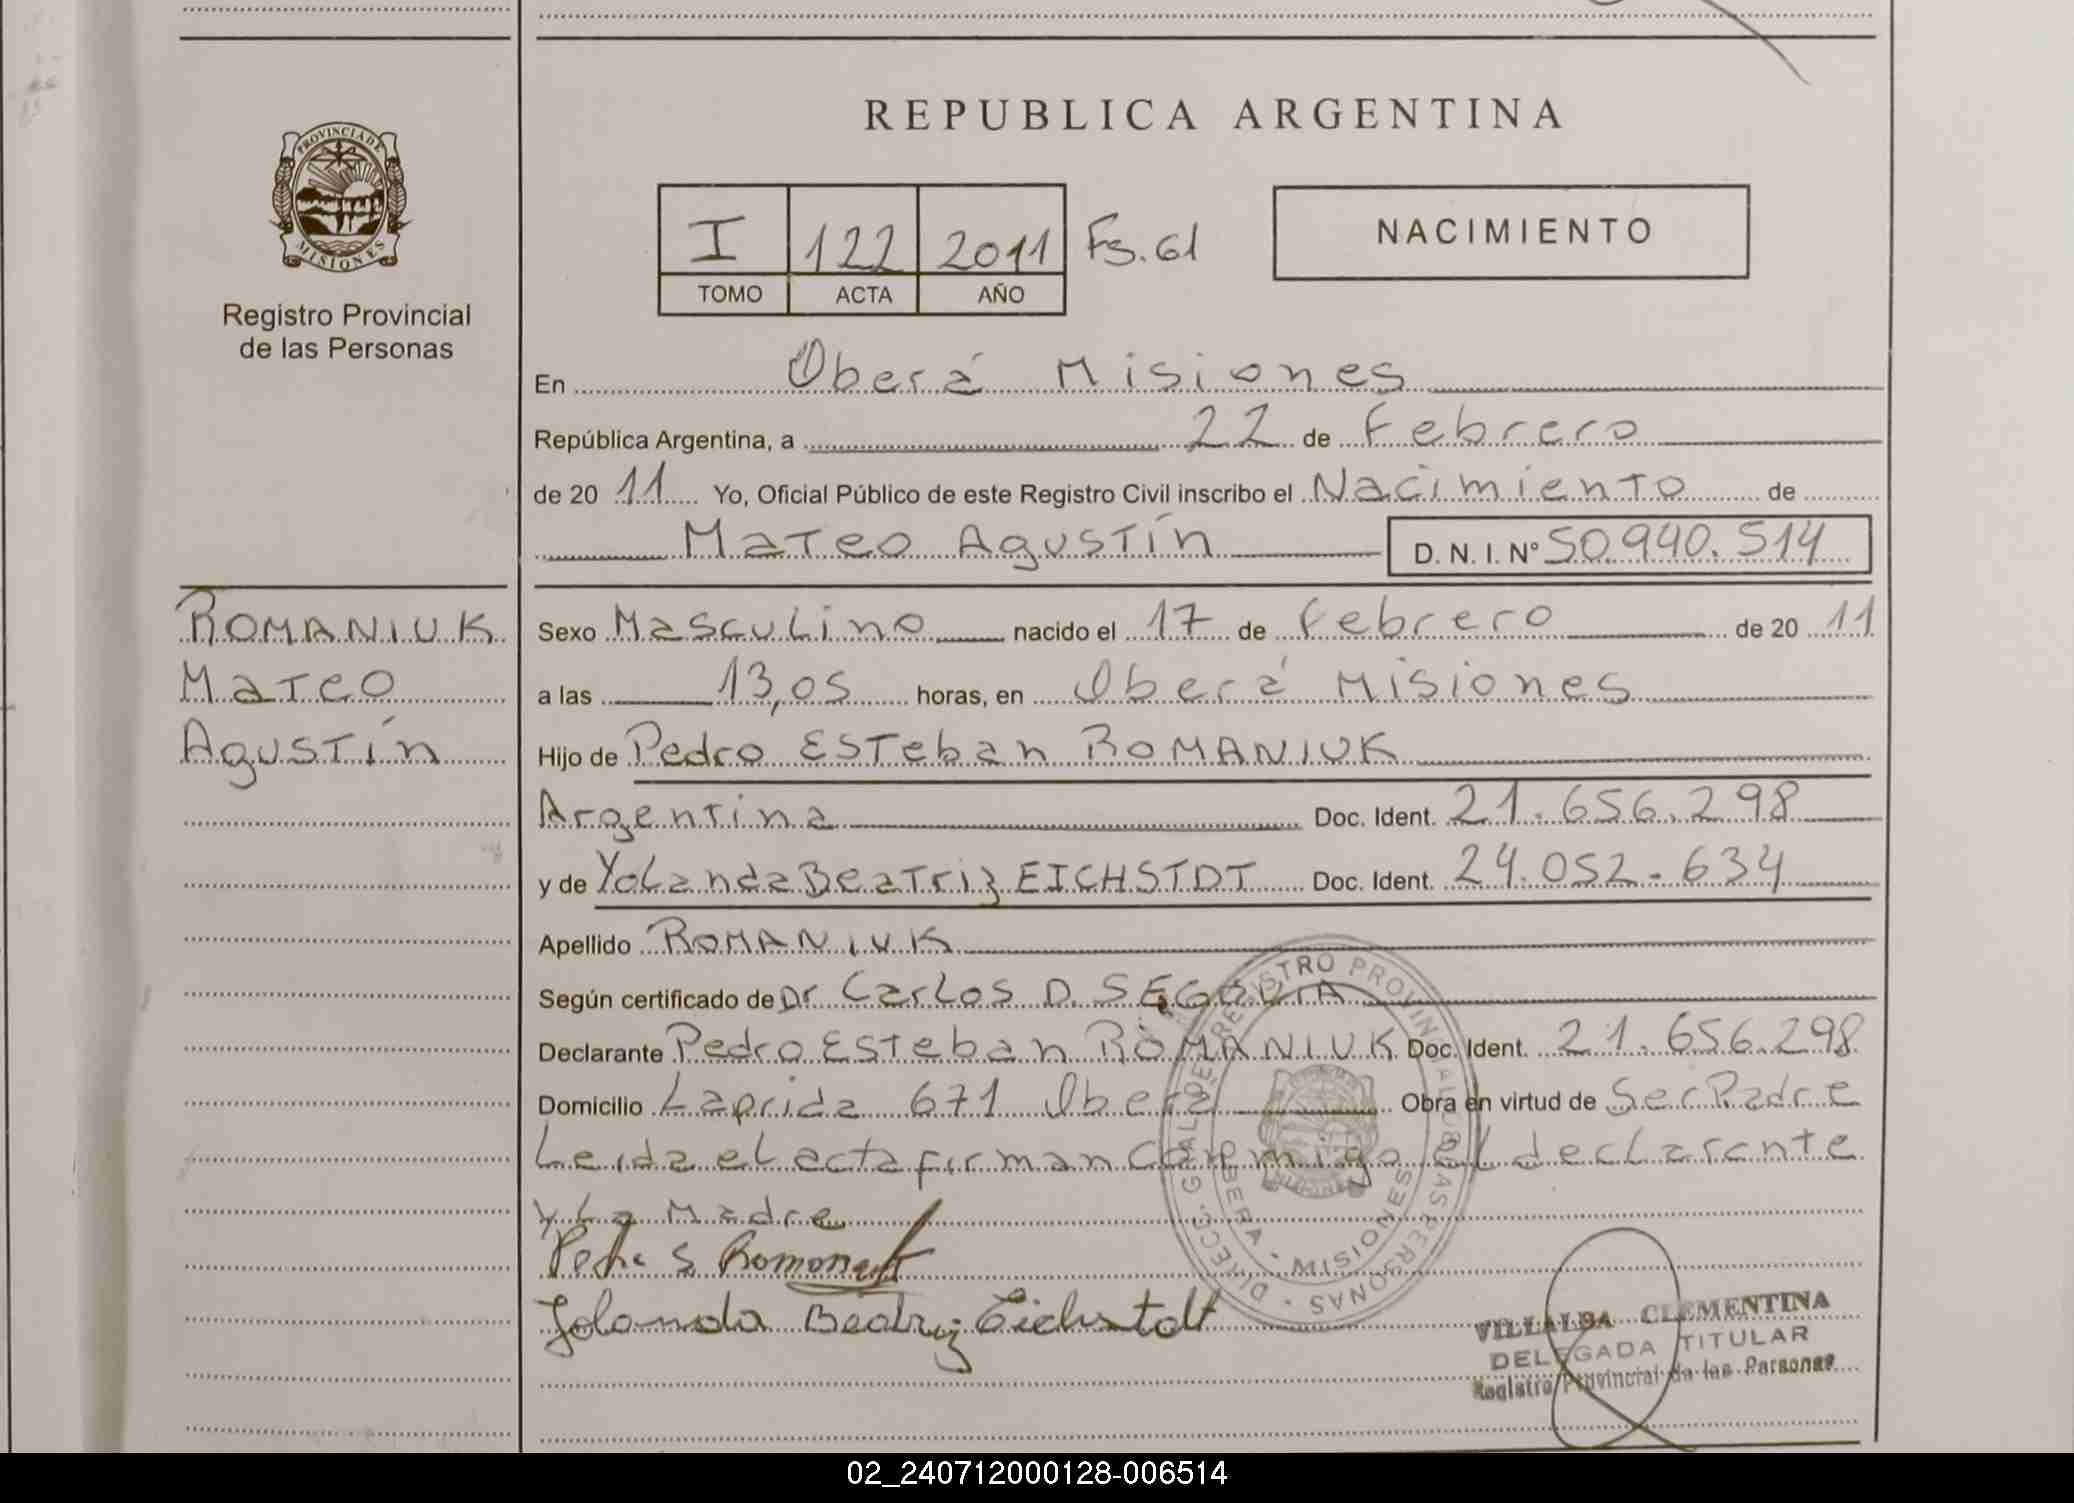 REPUBLICA ARGENTINA
PROVINCIA DE
MISIONES
Registro Provincial
de las Personas
I 122 2011 Fs. 61
TOMO ACTA AÑO
NACIMIENTO
En Oberá Misiones
República Argentina, a 22 de Febrero
de 20 11 Yo, Oficial Público de este Registro Civil inscribo el Nacimiento de
Mateo Agustín D. N. I. N° 50.940.514
ROMANIUK
Mateo
Agustín
Sexo Masculino nacido el 17 de Febrero de 20 11
a las 13,05 horas, en Oberá Misiones
Hijo de Pedro Esteban ROMANIUK
Argentina Doc. Ident. 21.656.298
y de Yolanda Beatriz EICHSTDT Doc. Ident. 24.052.634
Apellido ROMANIUK
Según certificado de Dr Carlos D. SEGOVIA
Declarante Pedro Esteban ROMANIUK Doc. Ident. 21.656.298
Domicilio Laprida 671 Oberá Obra en virtud de Ser Padre
Leida el acta firman conmigo el declarante
y La Madre
Yolanda Beatriz Eichstdt
DIRECC. GRAL. DE REGISTRO PROVINCIAL DE LAS PERSONAS
OBERA - MISIONES
VILLALBA CLEMENTINA
DELEGADA TITULAR
Registro Provincial de las Personas
02_240712000128-006514